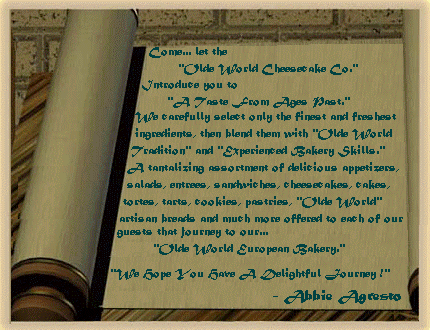 Come... let the
"Olde World Cheesecake Co."
Introduce you to
"A Taste From Ages Past."
We carefully select only the finest and freshest
ingredients, then blend them with "Olde World
Tradition" and "Experienced Bakery Skills."
A tantalizing assortment of delicious appetizers,
salads, entrees, sandwiches, cheesecakes, cakes,
tortes, tarts, cookies, pastries, "Olde World"
artisan breads and much more offered to each of our
guests that journey to our...
"Olde World European Bakery."
"We Hope You Have A Delightful Journey!"
- Abbie Agresto